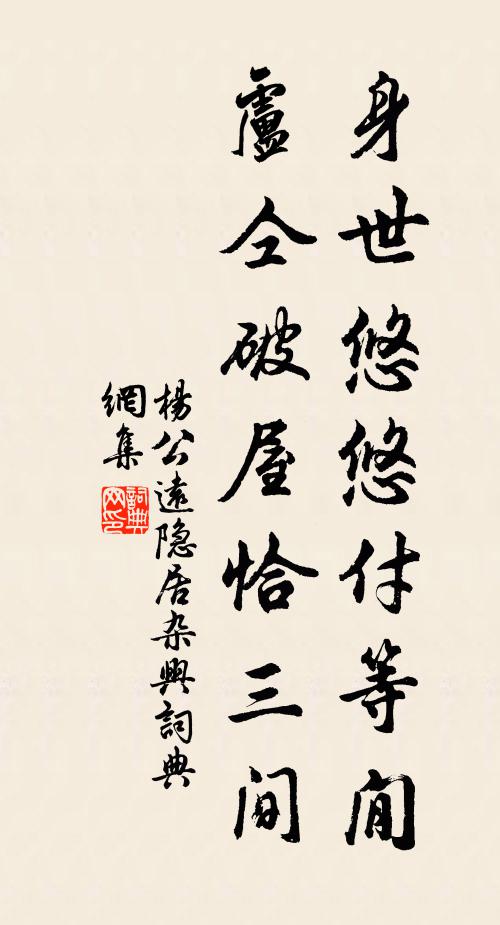 身世悠悠付等閒
盧仝破屋恰三间
楊公遠隐居杂興詞典
網集
詞典網印